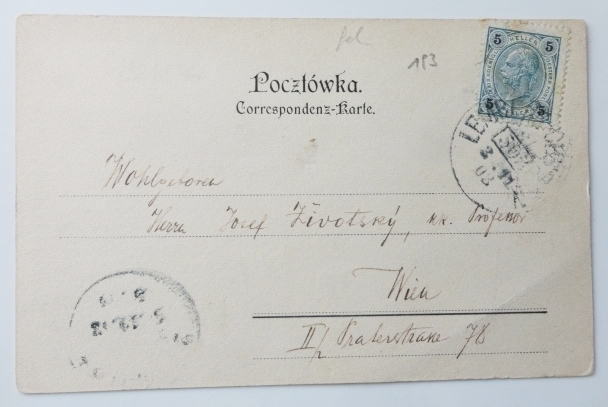 fol
183
5 HELLER 5
5 5
Pocztówka.
Correspondenz-Karte.
LEM
3
02
Wohlgeboren
Herrn Josef Životský, kk. Professor
Wien
II/2 Praterstrasse 78